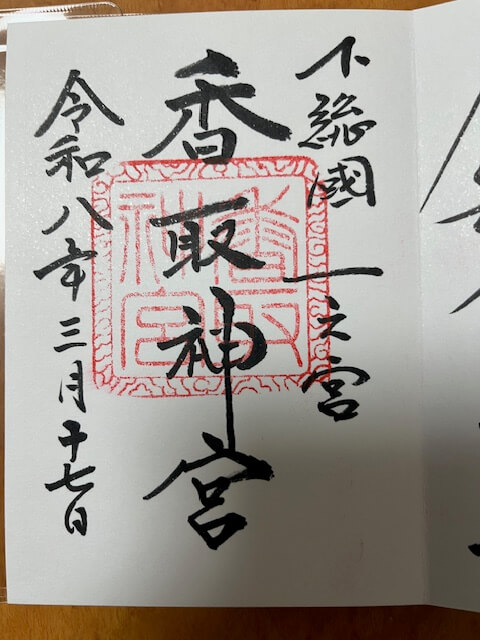 下総國一之宮
香取神宮
令和八年三月十七日
香取神宮